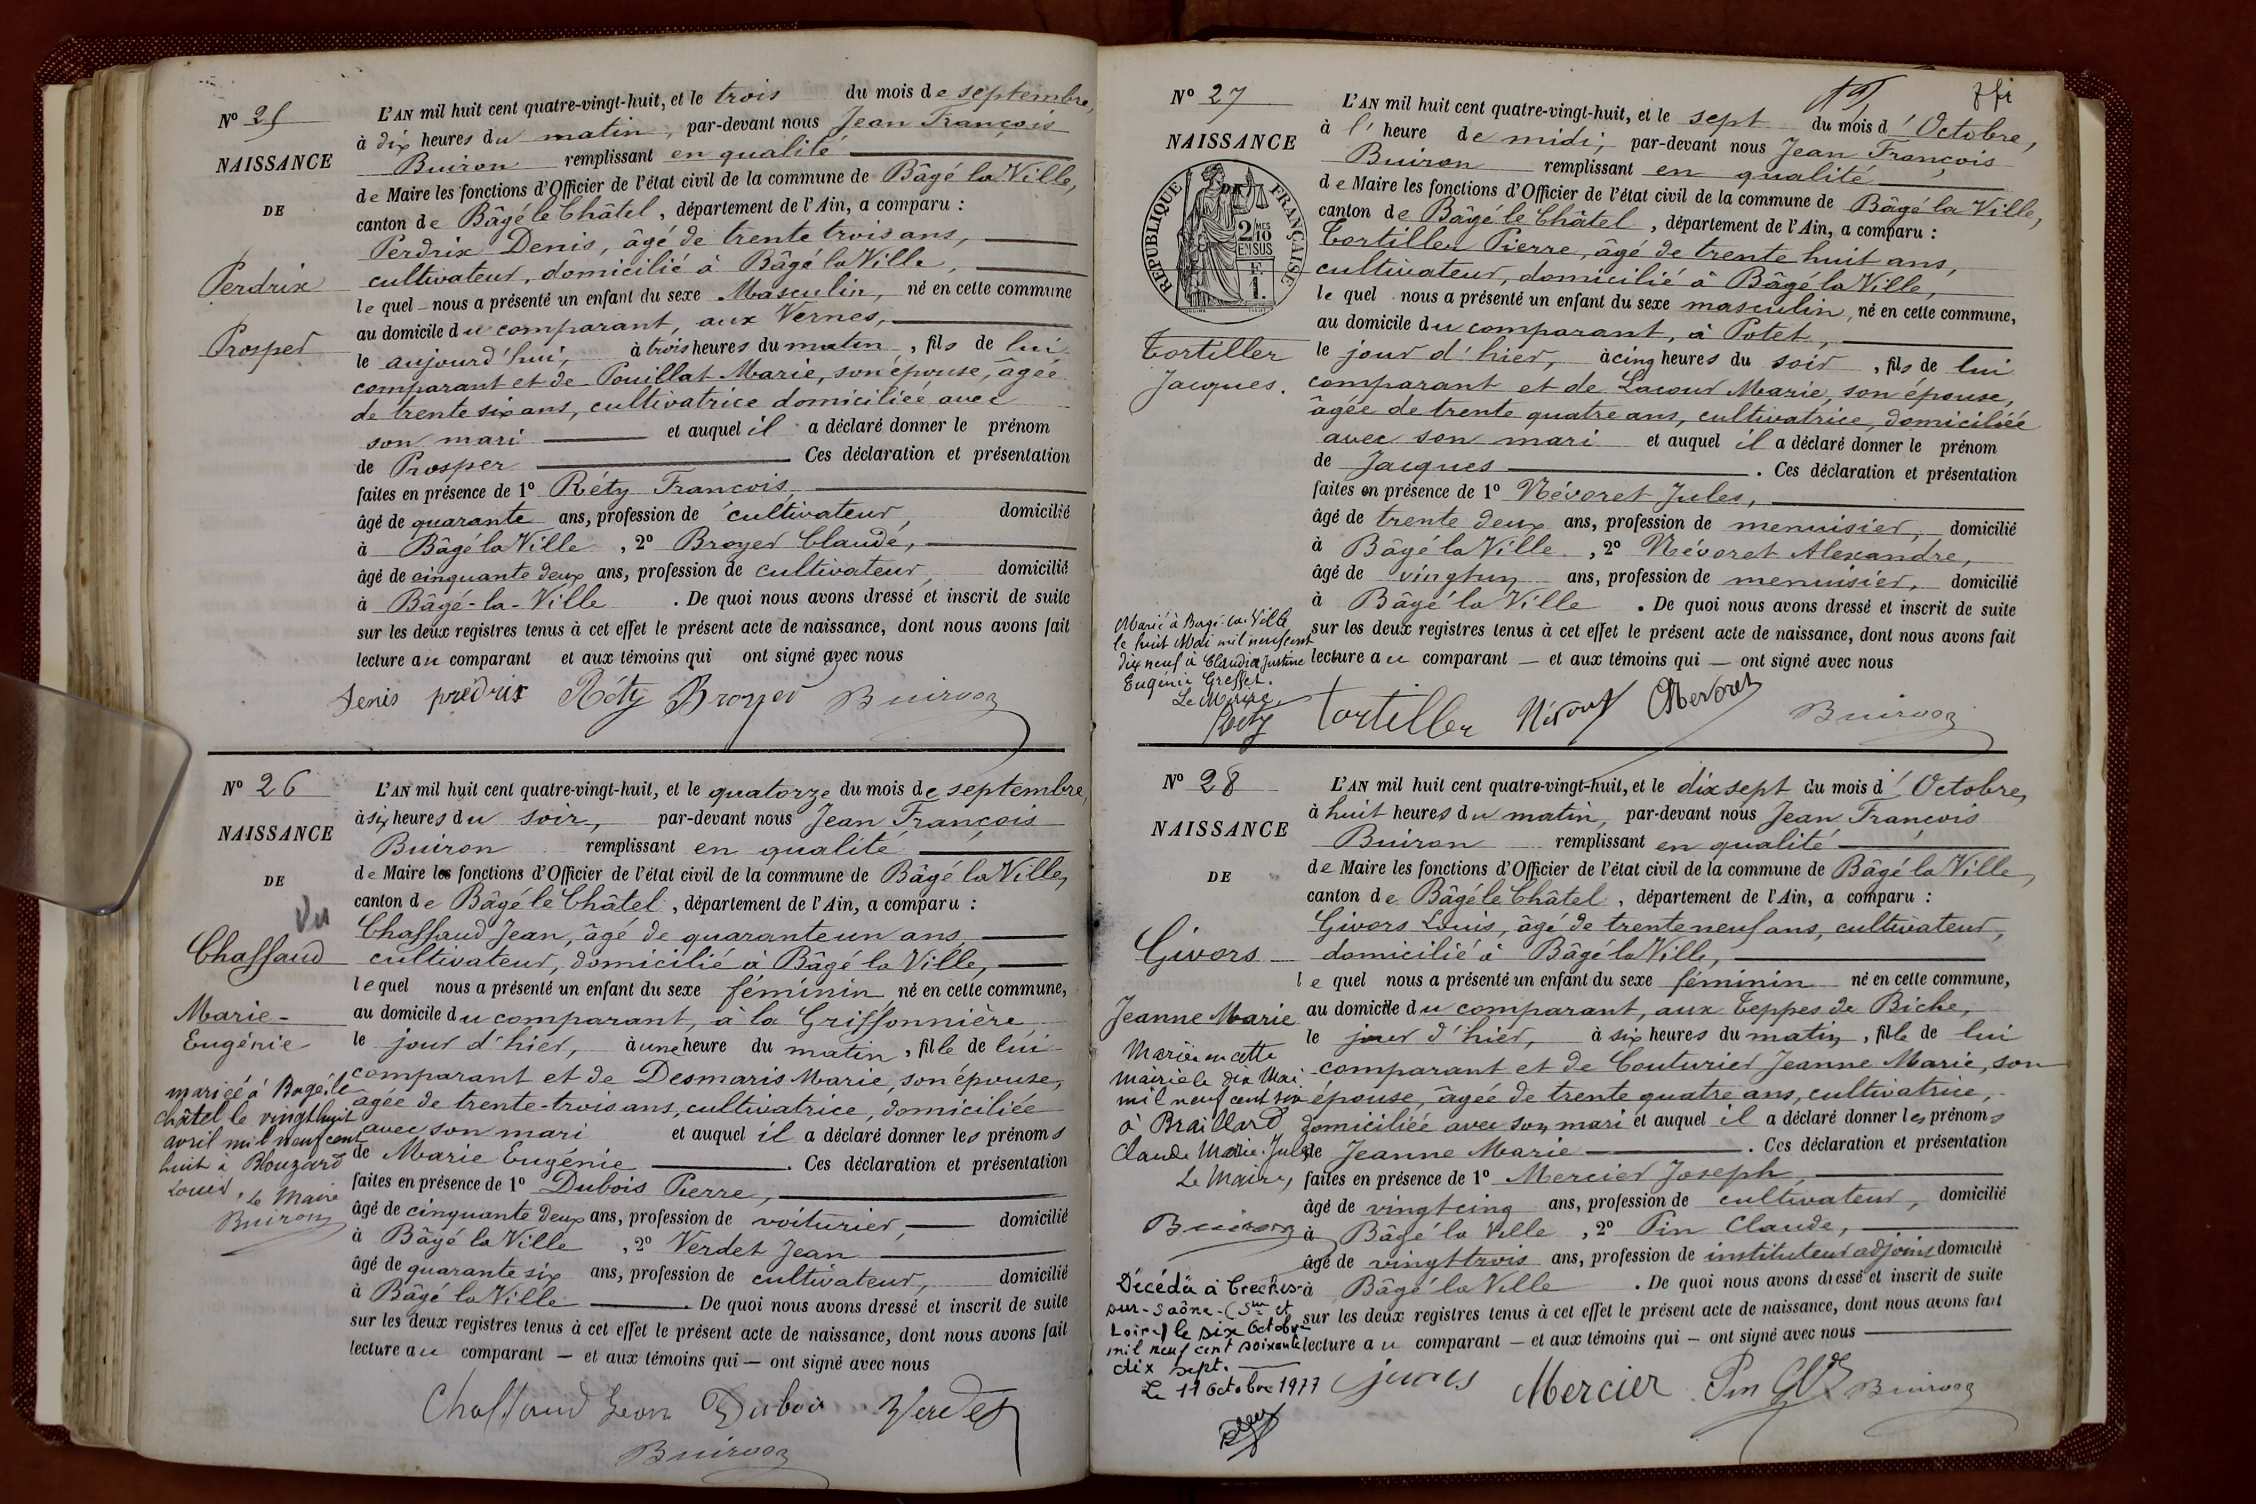 Nº 25
NAISSANCE
DE
Perdrix
Prosper
L'AN mil huit cent quatre-vingt-huit, et le trois du mois de septembre,
à dix heures du matin, par-devant nous Jean François
Buiron remplissant en qualité
de Maire les fonctions d'Officier de l'état civil de la commune de Bâgé la Ville,
canton de Bâgé le Châtel, département de l'Ain, a comparu :
Perdrix Denis, âgé de trente trois ans,
cultivateur, domicilié à Bâgé la Ville,
lequel nous a présenté un enfant du sexe Masculin, né en cette commune
au domicile du comparant, aux Vernes,
le aujourd'hui, à trois heures du matin, fils de lui
comparant et de Pouillat Marie, son épouse, âgée
de trente six ans, cultivatrice domiciliée avec
son mari et auquel il a déclaré donner le prénom
de Prosper Ces déclaration et présentation
faites en présence de 1º Réty François,
âgé de quarante ans, profession de cultivateur, domicilié
à Bâgé la Ville, 2º Broyer Claude,
âgé de cinquante deux ans, profession de cultivateur, domicilié
à Bâgé-la-Ville. De quoi nous avons dressé et inscrit de suite
sur les deux registres tenus à cet effet le présent acte de naissance, dont nous avons fait
lecture au comparant et aux témoins qui ont signé avec nous
Denis predrix Réty Broyer Buiron
Nº 26
NAISSANCE
DE
Vu
Chaffaud
Marie-
Eugénie
mariée à Bagé-le
châtel le vingt huit
avril mil neuf cent
huit à Blouzard
Louis, le Maire
Buiron
L'AN mil huit cent quatre-vingt-huit, et le quatorze du mois de septembre,
à six heures du soir, par-devant nous Jean François
Buiron remplissant en qualité
de Maire les fonctions d'Officier de l'état civil de la commune de Bâgé la Ville,
canton de Bâgé le Châtel, département de l'Ain, a comparu :
Chaffaud Jean, âgé de quarante un ans,
cultivateur, domicilié à Bâgé la Ville,
lequel nous a présenté un enfant du sexe féminin, né en cette commune,
au domicile du comparant, à la Griffonnière,
le jour d'hier, à une heure du matin, fille de lui
comparant et de Desmaris Marie, son épouse,
âgée de trente-trois ans, cultivatrice, domiciliée
avec son mari et auquel il a déclaré donner les prénoms
de Marie Eugénie. Ces déclaration et présentation
faites en présence de 1º Dubois Pierre,
âgé de cinquante deux ans, profession de voiturier, domicilié
à Bâgé la Ville, 2º Verdet Jean
âgé de quarante six ans, profession de cultivateur, domicilié
à Bâgé la Ville. De quoi nous avons dressé et inscrit de suite
sur les deux registres tenus à cet effet le présent acte de naissance, dont nous avons fait
lecture au comparant — et aux témoins qui — ont signé avec nous
Chaffaud Jean Dubois Verdet
Buiron
Nº 27
NAISSANCE
RÉPUBLIQUE FRANÇAISE
2 MES 10 EN SUS
F. 1.
Tortiller
Jacques.
Marié à Bagé-la-Ville
le huit Mai mil neuf cent
dix neuf à Claudia Justine
Eugénie Greffet.
Le Maire,
Réty
L'AN mil huit cent quatre-vingt-huit, et le sept du mois d'Octobre,
à l'heure de midi, par-devant nous Jean François
Buiron remplissant en qualité
de Maire les fonctions d'Officier de l'état civil de la commune de Bâgé la Ville,
canton de Bâgé le Châtel, département de l'Ain, a comparu :
Tortiller Pierre, âgé de trente huit ans,
cultivateur, domicilié à Bâgé la Ville,
lequel nous a présenté un enfant du sexe masculin, né en cette commune,
au domicile du comparant, à Potet,
le jour d'hier, à cinq heures du soir, fils de lui
comparant et de Lacour Marie, son épouse,
âgée de trente quatre ans, cultivatrice, domiciliée
avec son mari et auquel il a déclaré donner le prénom
de Jacques. Ces déclaration et présentation
faites en présence de 1º Névoret Jules,
âgé de trente deux ans, profession de menuisier, domicilié
à Bâgé la Ville, 2º Névoret Alexandre,
âgé de vingt un ans, profession de menuisier, domicilié
à Bâgé la Ville. De quoi nous avons dressé et inscrit de suite
sur les deux registres tenus à cet effet le présent acte de naissance, dont nous avons fait
lecture au comparant — et aux témoins qui — ont signé avec nous
tortiller Névoret ANevoret Buiron
Nº 28
NAISSANCE
DE
Givors
Jeanne Marie
Mariée en cette
mairie le dix Mai
mil neuf cent dix
à Braillard
Claude Marie Jules
Le Maire,
Buiron
Décédée à Crêches-
sur-Saône (Sne et
Loire) le six Octobre
mil neuf cent soixante
dix sept.
Le 11 Octobre 1977
L'AN mil huit cent quatre-vingt-huit, et le dix sept du mois d'Octobre,
à huit heures du matin, par-devant nous Jean François
Buiron remplissant en qualité
de Maire les fonctions d'Officier de l'état civil de la commune de Bâgé la Ville,
canton de Bâgé le Châtel, département de l'Ain, a comparu :
Givors Louis, âgé de trente neuf ans, cultivateur,
domicilié à Bâgé la Ville,
lequel nous a présenté un enfant du sexe féminin né en cette commune,
au domicile du comparant, aux Teppes de Biche,
le jour d'hier, à six heures du matin, fille de lui
comparant et de Couturier Jeanne Marie, son
épouse, âgée de trente quatre ans, cultivatrice,
domiciliée avec son mari et auquel il a déclaré donner les prénoms
de Jeanne Marie. Ces déclaration et présentation
faites en présence de 1º Mercier Joseph,
âgé de vingt cinq ans, profession de cultivateur, domicilié
à Bâgé la Ville, 2º Pin Claude,
âgé de vingt trois ans, profession de instituteur adjoint domicilié
à Bâgé la Ville. De quoi nous avons dressé et inscrit de suite
sur les deux registres tenus à cet effet le présent acte de naissance, dont nous avons fait
lecture au comparant — et aux témoins qui — ont signé avec nous
Mercier Pin Buiron